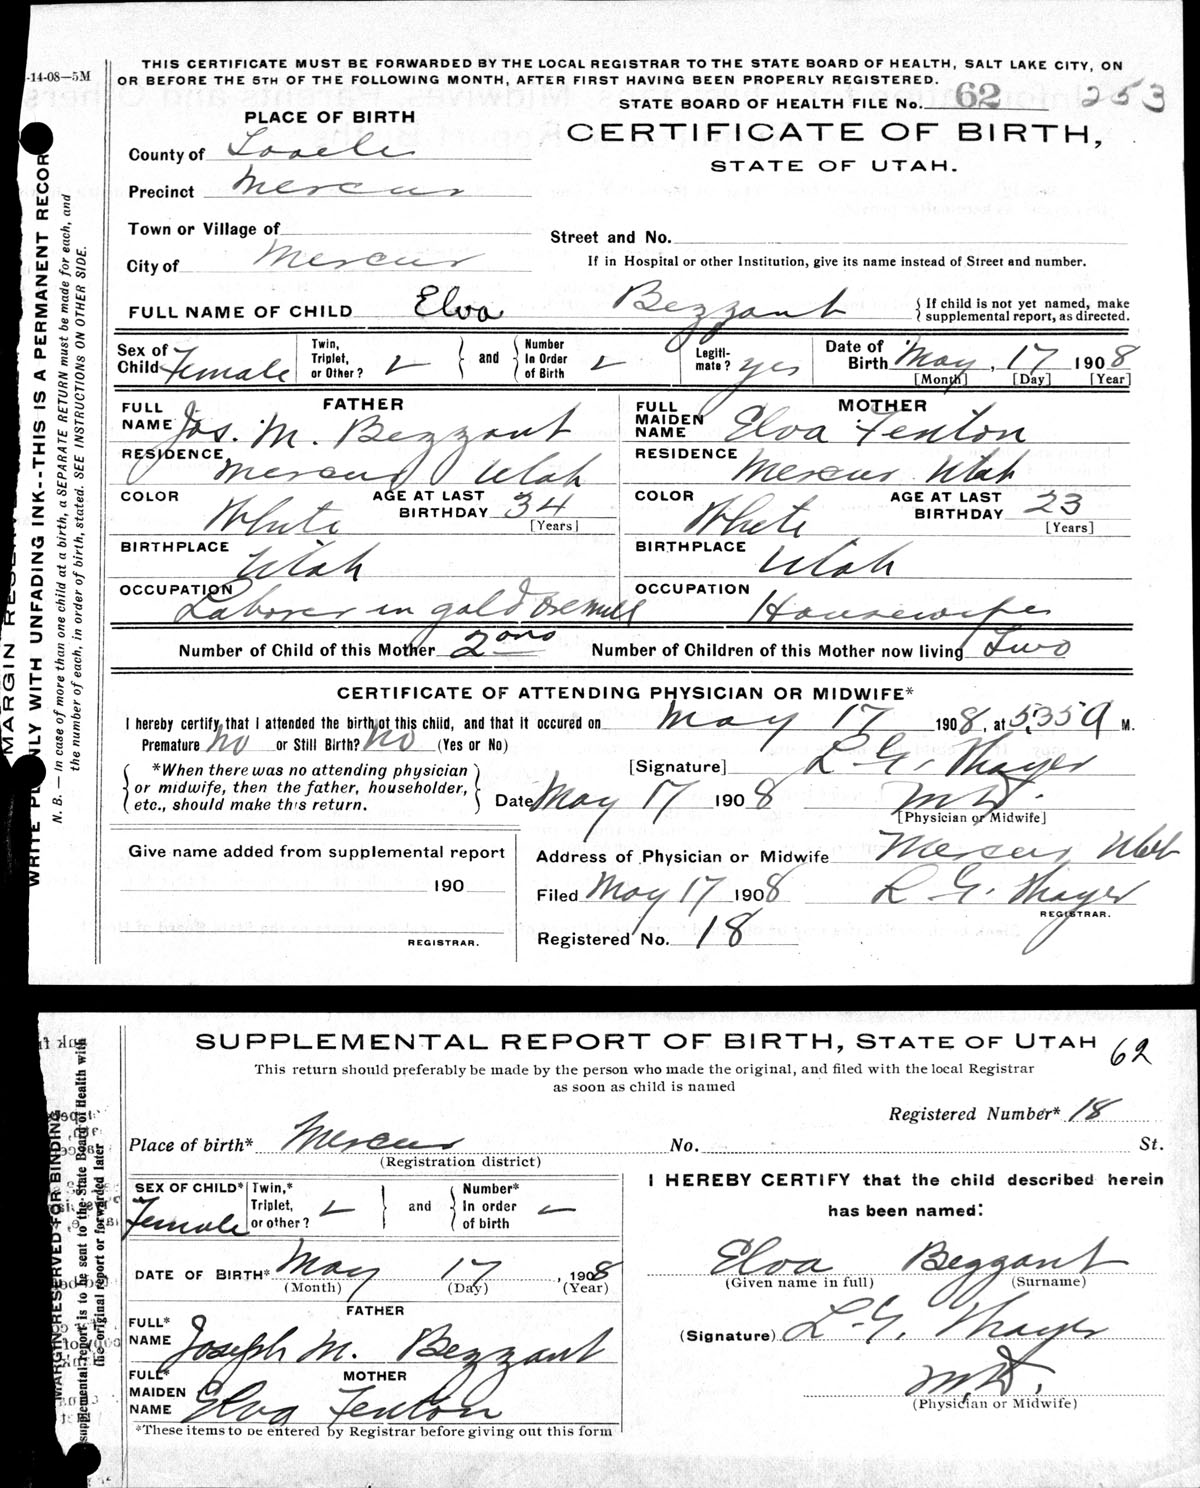 -14-08—5M
THIS CERTIFICATE MUST BE FORWARDED BY THE LOCAL REGISTRAR TO THE STATE BOARD OF HEALTH, SALT LAKE CITY, ON
OR BEFORE THE 5TH OF THE FOLLOWING MONTH, AFTER FIRST HAVING BEEN PROPERLY REGISTERED.
STATE BOARD OF HEALTH FILE No. 62 253
PLACE OF BIRTH
CERTIFICATE OF BIRTH,
STATE OF UTAH.
County of Tooele
Precinct Mercur
Town or Village of
Street and No.
City of Mercur
If in Hospital or other Institution, give its name instead of Street and number.
FULL NAME OF CHILD Elva Bezzant
{ If child is not yet named, make
supplemental report, as directed.
Sex of Child Female
Twin, Triplet, or Other?
and
Number in Order of Birth
Legiti-mate? yes
Date of Birth May, 17 1908
[Month] [Day] [Year]
FATHER
FULL NAME Jos. M. Bezzant
RESIDENCE Mercur Utah
COLOR White AGE AT LAST BIRTHDAY 34 [Years]
BIRTHPLACE Utah
OCCUPATION Laborer in gold ore mill
MOTHER
FULL MAIDEN NAME Elva Fenton
RESIDENCE Mercur Utah
COLOR White AGE AT LAST BIRTHDAY 23 [Years]
BIRTHPLACE Utah
OCCUPATION Housewife
Number of Child of this Mother 2
Number of Children of this Mother now living Two
CERTIFICATE OF ATTENDING PHYSICIAN OR MIDWIFE*
I hereby certify that I attended the birth of this child, and that it occured on May 17 1908, at 5:35 a M.
Premature No or Still Birth? No (Yes or No)
*When there was no attending physician
or midwife, then the father, householder,
etc., should make this return.
[Signature] L. G. Thayer
Date May 17 1908 M.D.
[Physician or Midwife]
Give name added from supplemental report
190
REGISTRAR.
Address of Physician or Midwife Mercur Utah
Filed May 17 1908 L. G. Thayer
REGISTRAR.
Registered No. 18
WRITE PLAINLY WITH UNFADING INK--THIS IS A PERMANENT RECOR
N. B. — In case of more than one child at a birth, a SEPARATE RETURN must be made for each, and
the number of each, in order of birth, stated. SEE INSTRUCTIONS ON OTHER SIDE.
SUPPLEMENTAL REPORT OF BIRTH, STATE OF UTAH 62
This return should preferably be made by the person who made the original, and filed with the local Registrar
as soon as child is named
Registered Number* 18
Place of birth* Mercur No. St.
(Registration district)
SEX OF CHILD* Female
Twin,* Triplet, or other?
and
Number* In order of birth
DATE OF BIRTH* May 17, 1908
(Month) (Day) (Year)
FATHER
FULL* NAME Joseph M. Bezzant
MOTHER
FULL* MAIDEN NAME Elva Fenton
*These items to be entered by Registrar before giving out this form
I HEREBY CERTIFY that the child described herein
has been named:
Elva Bezzant
(Given name in full) (Surname)
(Signature) L. G. Thayer
M.D.
(Physician or Midwife)
MARGIN RESERVED FOR BINDING
supplemental report is to be sent to the State Board of Health with
the original report or forwarded later